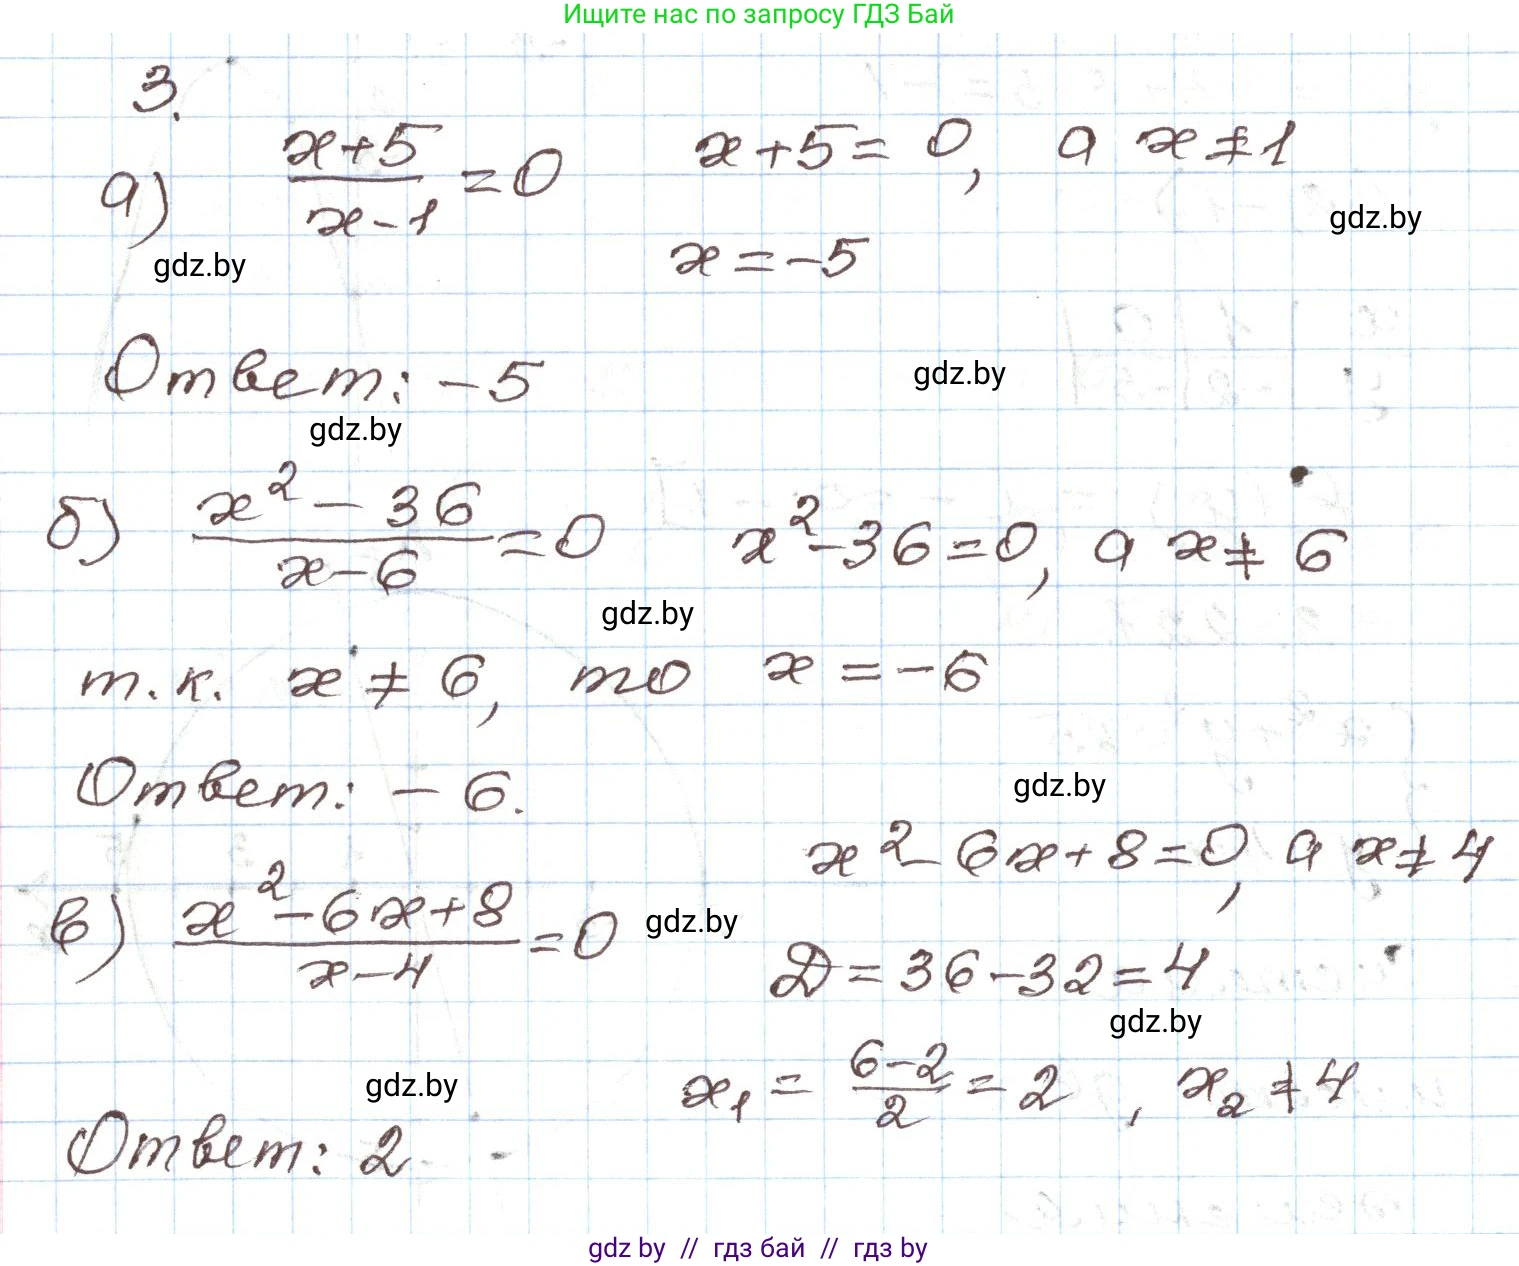 Ищите нас по запросу ГДЗ Бай
3.
а) (x+5)/(x-1) = 0 x+5=0, а x≠1
gdz.by
gdz.by
x=-5
Ответ: -5
gdz.by
gdz.by
б) (x²-36)/(x-6) = 0 x²-36=0, а x≠6
gdz.by
т.к. x≠6, то x=-6
Ответ: -6.
gdz.by
x²-6x+8=0, а x≠4
в) (x²-6x+8)/(x-4) = 0
gdz.by
D=36-32=4
gdz.by
x₁ = (6-2)/2 = 2, x₂≠4
gdz.by
Ответ: 2
gdz by // гдз бай // гдз by